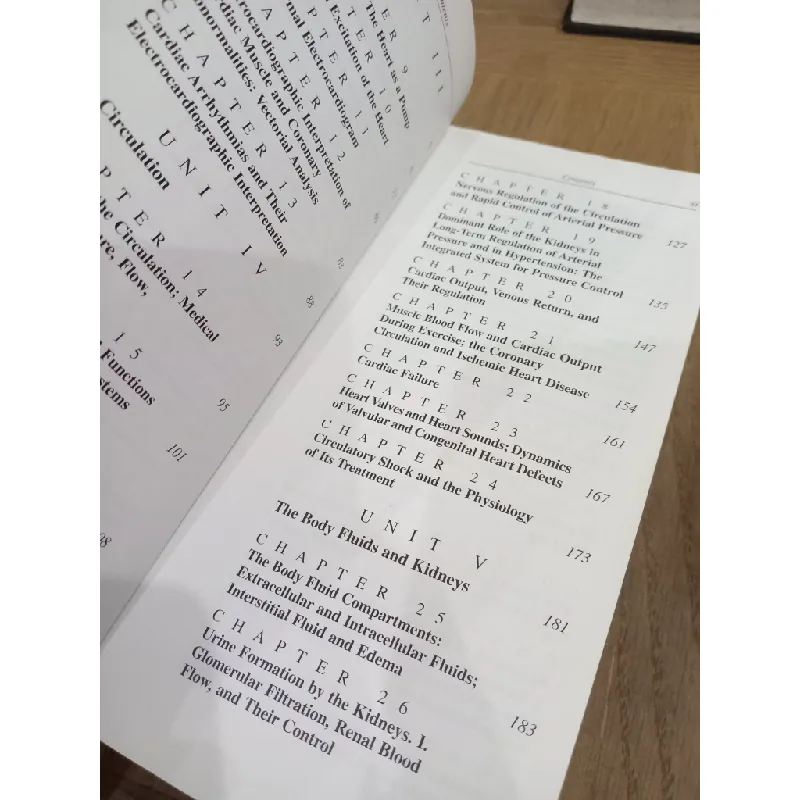 Contents
T III
E R 9
The Heart as a Pump
T E R 10
Excitation of the Heart
P T E R 11
mal Electrocardiogram
A P T E R 12
ectrocardiographic Interpretation of
rdiac Muscle and Coronary
bnormalities: Vectorial Analysis
C H A P T E R 13
Cardiac Arrhythmias and Their
Electrocardiographic Interpretation
82
U N I T IV
Circulation
88
T E R 14
he Circulation; Medical
re, Flow,
93
15
Functions
stems
95
101
Contents
C H A P T E R 18
Nervous Regulation of the Circulation
and Rapid Control of Arterial Pressure
127
C H A P T E R 19
Dominant Role of the Kidneys in
Long-Term Regulation of Arterial
Pressure and in Hypertension: The
Integrated System for Pressure Control
135
C H A P T E R 20
Cardiac Output, Venous Return, and
Their Regulation
147
C H A P T E R 21
Muscle Blood Flow and Cardiac Output
During Exercise; the Coronary
Circulation and Ischemic Heart Disease
154
C H A P T E R 22
Cardiac Failure
161
C H A P T E R 23
Heart Valves and Heart Sounds; Dynamics
of Valvular and Congenital Heart Defects
167
C H A P T E R 24
Circulatory Shock and the Physiology
of Its Treatment
173
U N I T V
The Body Fluids and Kidneys
181
C H A P T E R 25
The Body Fluid Compartments:
Extracellular and Intracellular Fluids;
Interstitial Fluid and Edema
183
C H A P T E R 26
Urine Formation by the Kidneys. I.
Glomerular Filtration, Renal Blood
Flow, and Their Control